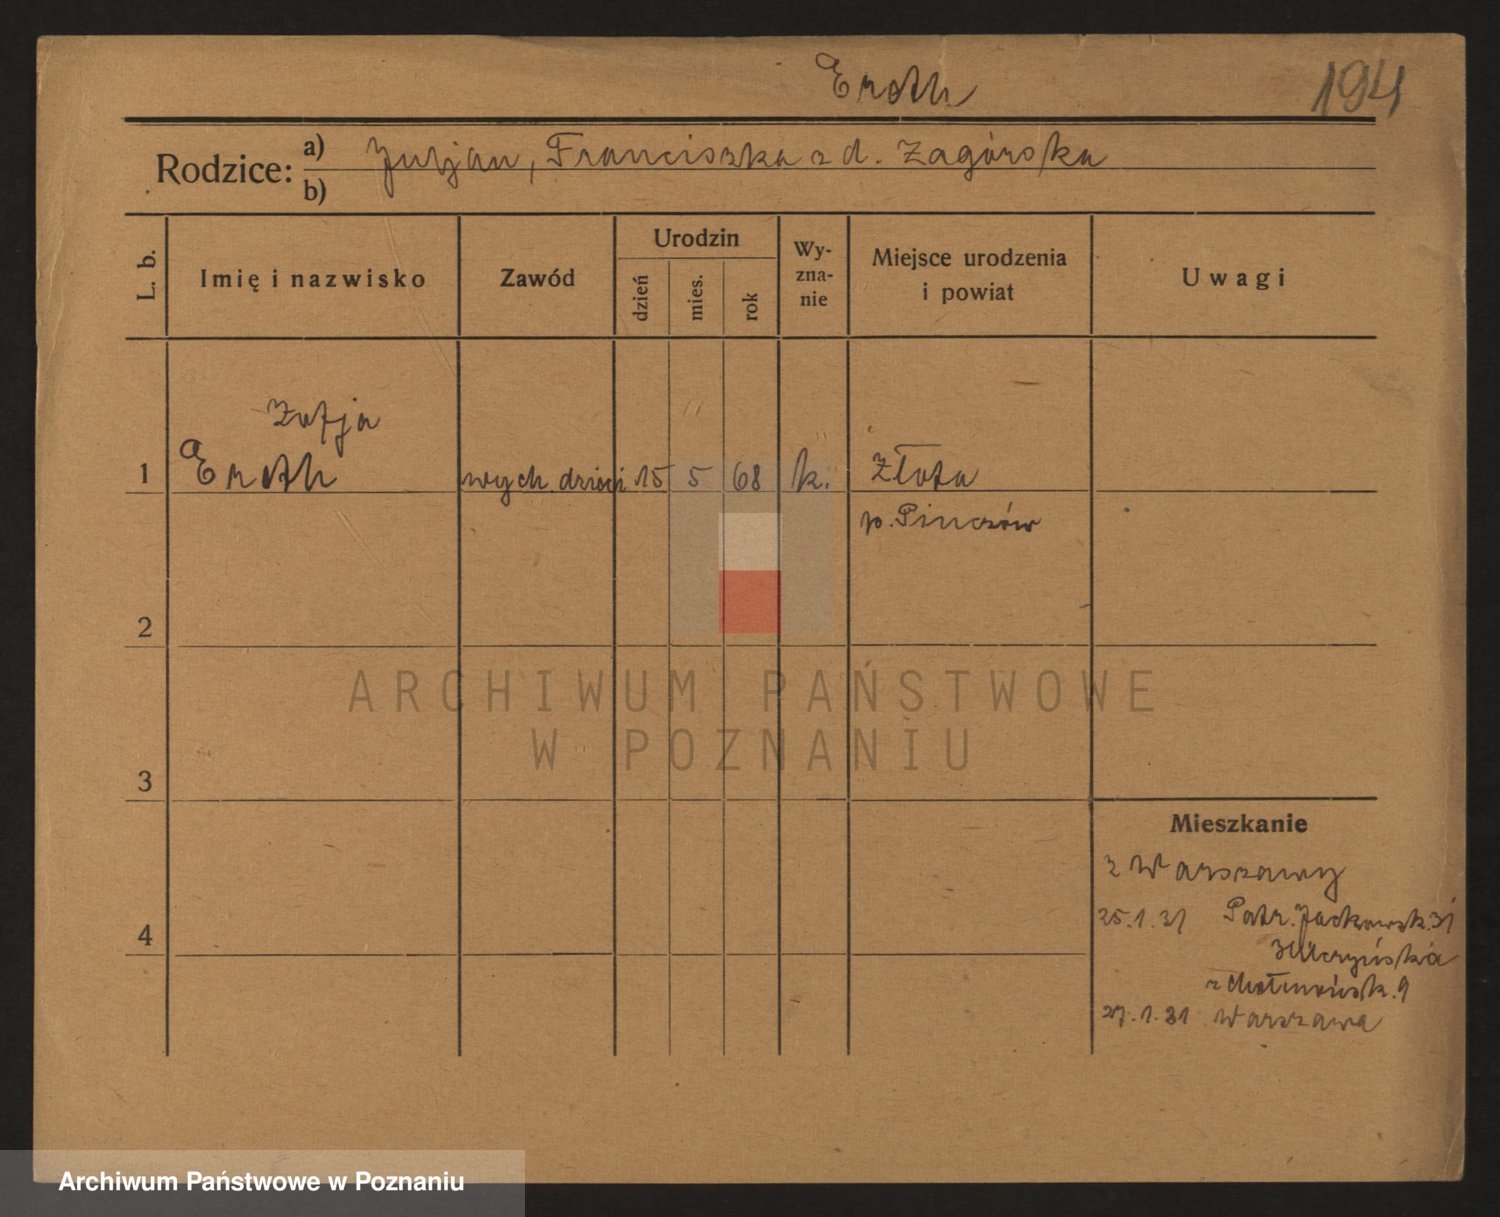 Eroth
194
Rodzice:
a) Juljan, Franciszka z d. Zagórska
b)
L. b.
Imię i nazwisko
Zawód
Urodzin
dzień
mies.
rok
Wy-
zna-
nie
Miejsce urodzenia
i powiat
Uwagi
Zofja
1 Eroth wych. dzieci 15 5 68 k. Złota
p. Pinczów
2
ARCHIWUM PAŃSTWOWE
W POZNANIU
3
Mieszkanie
z Warszawy
25.1.31 Patr. Jackowsk. 31
4
27.1.31 Warszawa
Archiwum Państwowe w Poznaniu